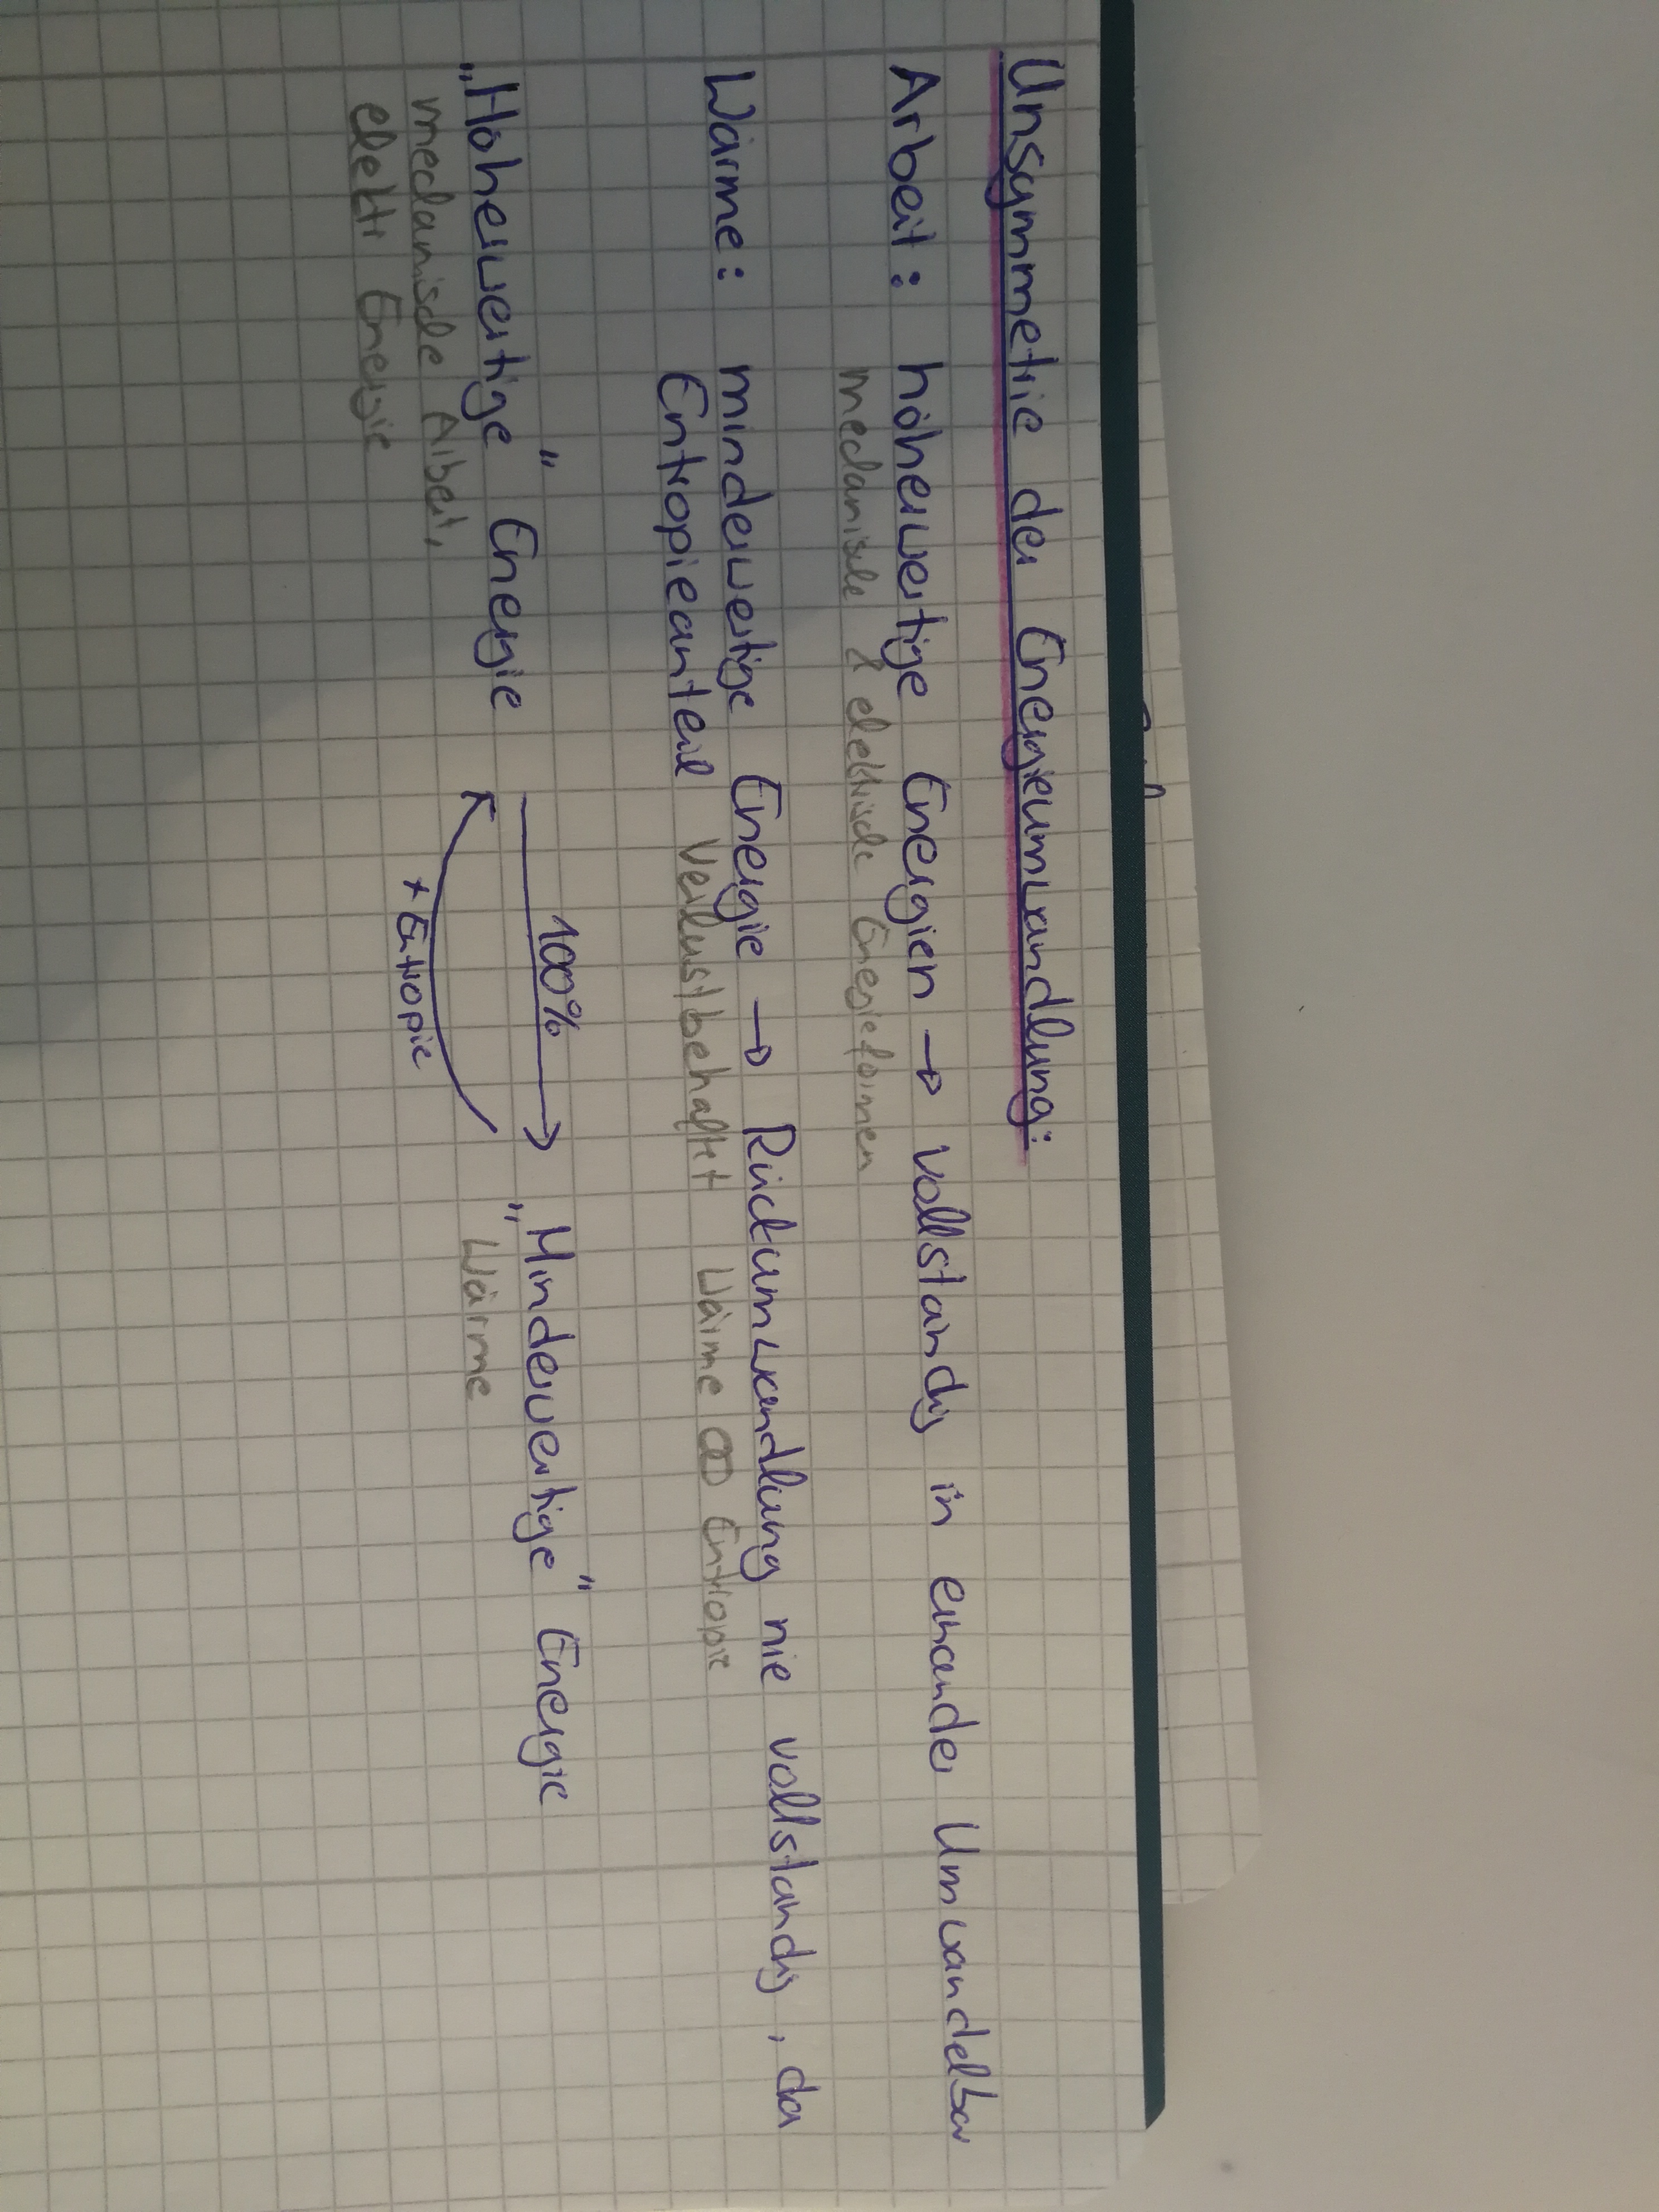 Unsymmetrie der Energieumwandlung:
Arbeit: höherwertige Energien → vollständig in einander Umwandelbar
mechanische & elektrische Energieformen
Wärme: minderwertige Energie → Rückumwandlung nie vollständig, da
Entropieanteil verlustbehaftet Wärme ∞ Entropie
"Höherwertige" Energie 100% "Minderwertige" Energie
mechanische Arbeit, Wärme
elektr Energie + Entropie